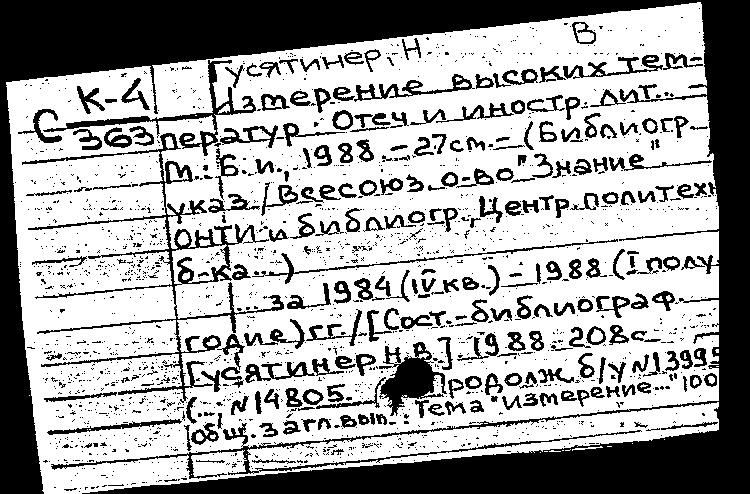 Гусятинер, Н. В.
С К-4/363
Измерение высоких тем-
ператур: Отеч. и иностр. лит... -
М.: Б. и., 1988. - 27см. - (Библиогр.
указ. / Всесоюз. о-во "Знание".
ОНТИ и библиогр., Центр. политехн
б-ка...)
... за 1984 (IV кв.) - 1988 (I полу-
годие) гг. / [Сост.-библиограф.
Гусятинер Н.В.] 1988. 208с
(...; N14805. Продолж. б/у N13995
общ. загл. вып.: Тема "Измерение..." 100